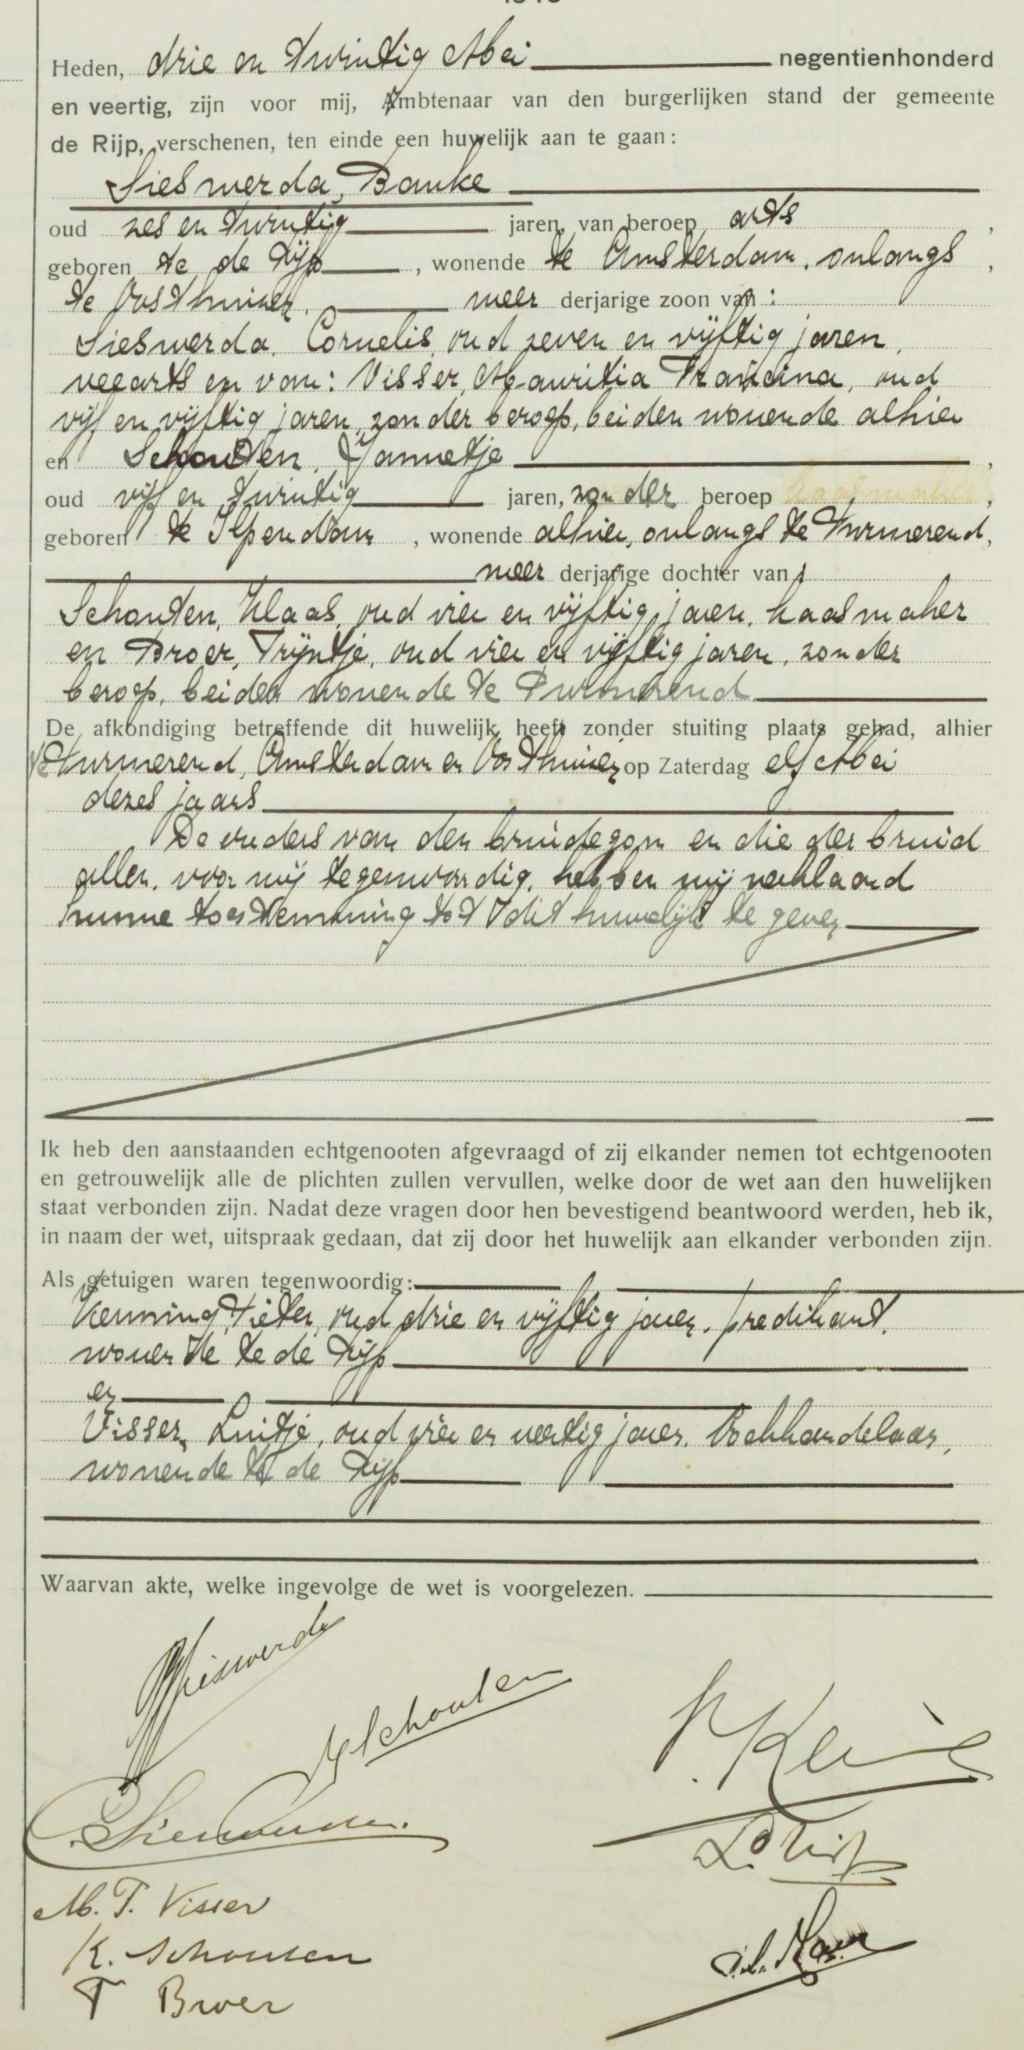 Heden, drie en twintig Mei negentienhonderd
en veertig, zijn voor mij, Ambtenaar van den burgerlijken stand der gemeente
de Rijp, verschenen, ten einde een huwelijk aan te gaan:
Sieswerda, Bauke
oud zes en twintig jaren, van beroep arts,
geboren te de Rijp, wonende te Amsterdam, onlangs,
te Oosthuizen, meer derjarige zoon van:
Sieswerda, Cornelis, oud zeven en vijftig jaren,
veearts en van: Visser, Mauritia Francina, oud
vijf en vijftig jaren, zonder beroep, beiden wonende alhier
en Schouten, Jannetje,
oud vijf en twintig jaren, zonder beroep,
geboren te Ilpendam, wonende alhier, onlangs te Purmerend,
meer derjarige dochter van:
Schouten, Klaas, oud vier en vijftig jaren, kaasmaker
en Broer, Trijntje, oud vier en vijftig jaren, zonder
beroep, beiden wonende te Purmerend
De afkondiging betreffende dit huwelijk heeft zonder stuiting plaats gehad, alhier
te Purmerend, Amsterdam en Oosthuizen op Zaterdag elf Mei
dezes jaars
De ouders van den bruidegom en die der bruid
allen, voor mij tegenwoordig, hebben mij verklaard
hunne toestemming tot dit huwelijk te geven
Ik heb den aanstaanden echtgenooten afgevraagd of zij elkander nemen tot echtgenooten
en getrouwelijk alle de plichten zullen vervullen, welke door de wet aan den huwelijken
staat verbonden zijn. Nadat deze vragen door hen bevestigend beantwoord werden, heb ik,
in naam der wet, uitspraak gedaan, dat zij door het huwelijk aan elkander verbonden zijn.
Als getuigen waren tegenwoordig:
Pieter, oud drie en vijftig jaren, predikant,
wonende te de Rijp
en
Visser, Luitje, oud vier en veertig jaren, boekhandelaar,
wonende te de Rijp
Waarvan akte, welke ingevolge de wet is voorgelezen.
Sieswerda
J Schouten
C. Sieswerda
M. F. Visser
K. Schouten
T Broer